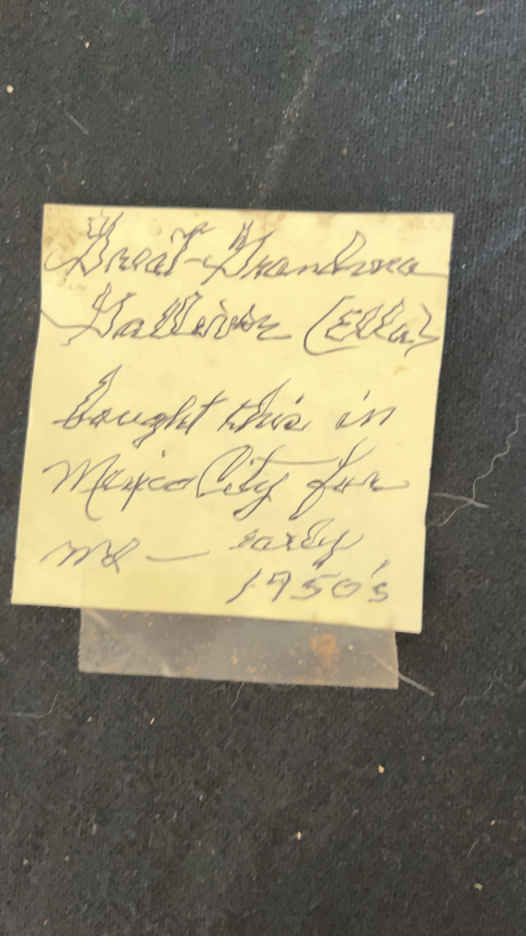 Great-Grandma
(Ella)
bought this in
Mexico City for
me — early
1950's